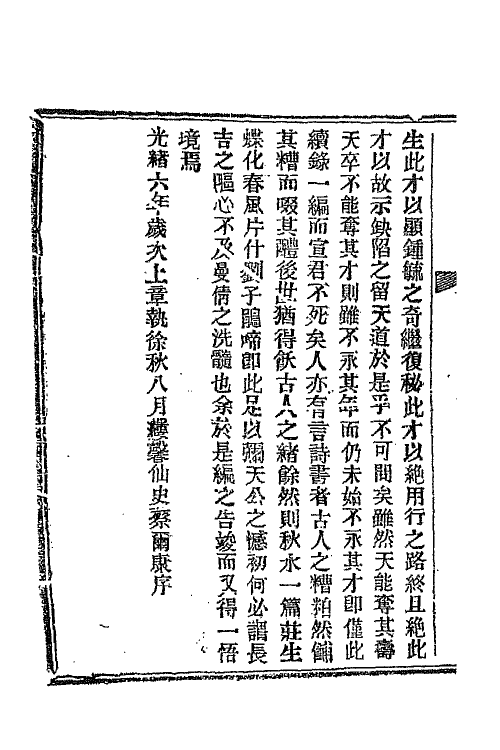 生此才以顯鍾毓之奇繼復秘此才以絶用行之路終且絶此
才以故示缺陷之留天道於是乎不可問矣雖然天能奪其壽
天卒不能奪其才則雖不永其年而仍未始不永其才即僅此
續錄一編而宣君不死矣人亦有言詩書者古人之糟粕然餔
其糟而啜其醴後世猶得飫古人之緒餘然則秋水一篇莊生
蝶化春風片什劉子鵑啼即此足以彌天公之憾初何必謂長
吉之嘔心不及曼倩之洗髓也余於是編之告竣而又得一悟
境焉
光緒六年歲次上章執徐秋八月縷馨仙史蔡爾康序